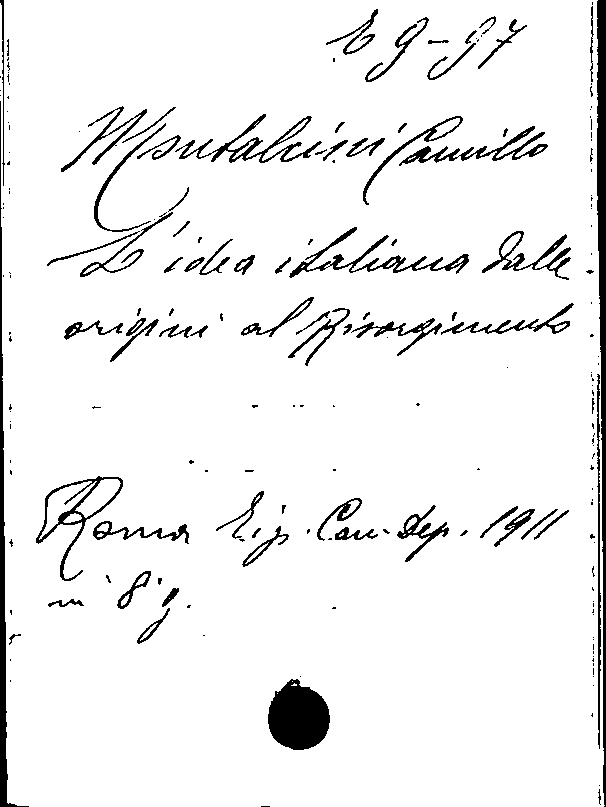 E 9-97
Montalcini Camillo
L'idea italiana dalle
origini al Risorgimento
Roma Tip. Cam. Dep. 1911
in 8° g.